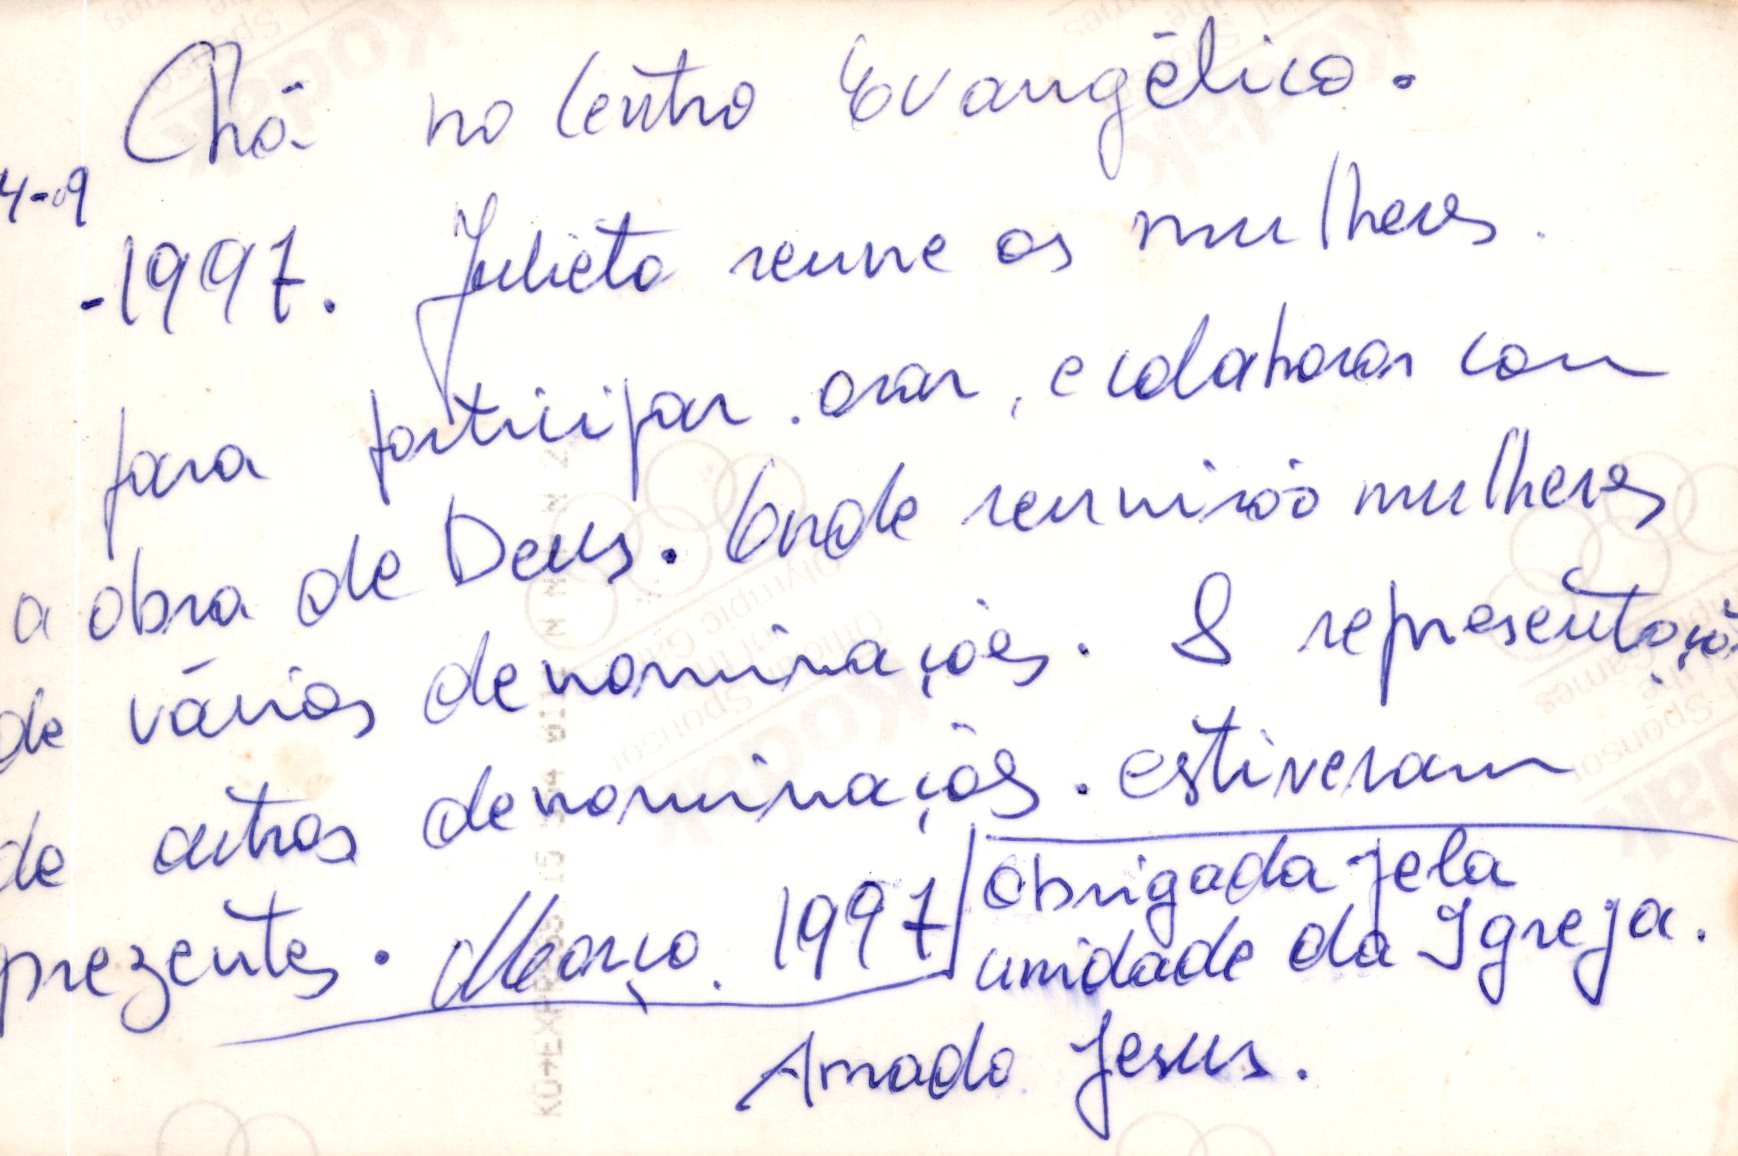 Chá no Centro Evangélico.
4-9
-1997. Julieta reune as mulheres.
para participar. orar, e colaborar com
a obra de Deus. Onde reunirão mulheres
de várias denominações. 8 representação
de outras denominações. estiveram
prezentes. Março. 1997
Obrigada pela
unidade da Igreja.
Amado Jesus.